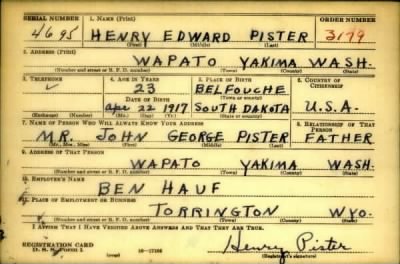 SERIAL NUMBER 1. NAME (Print) ORDER NUMBER
4695 HENRY EDWARD PISTER 3179
(First) (Middle) (Last)
2. ADDRESS (Print)
WAPATO YAKIMA WASH.
(Number and street or R. F. D. number) (Town) (County) (State)
3. TELEPHONE 4. AGE IN YEARS 5. PLACE OF BIRTH 6. COUNTRY OF CITIZENSHIP
23 BELFOUCHE
DATE OF BIRTH (Town or county)
Apr. 22 1917 SOUTH DAKOTA U.S.A.
(Exchange) (Number) (Mo.) (Day) (Yr.) (State or country)
7. NAME OF PERSON WHO WILL ALWAYS KNOW YOUR ADDRESS 8. RELATIONSHIP OF THAT PERSON
MR. JOHN GEORGE PISTER FATHER
(Mr., Mrs., Miss) (First) (Middle) (Last)
9. ADDRESS OF THAT PERSON
WAPATO YAKIMA WASH.
(Number and street or R. F. D. number) (Town) (County) (State)
10. EMPLOYER'S NAME
BEN HAUF
11. PLACE OF EMPLOYMENT OR BUSINESS
TORRINGTON WYO.
(Number and street or R. F. D. number) (Town) (County) (State)
I AFFIRM THAT I HAVE VERIFIED ABOVE ANSWERS AND THAT THEY ARE TRUE.
REGISTRATION CARD
D. S. S. Form 1 Henry Pister
(Registrant's signature)